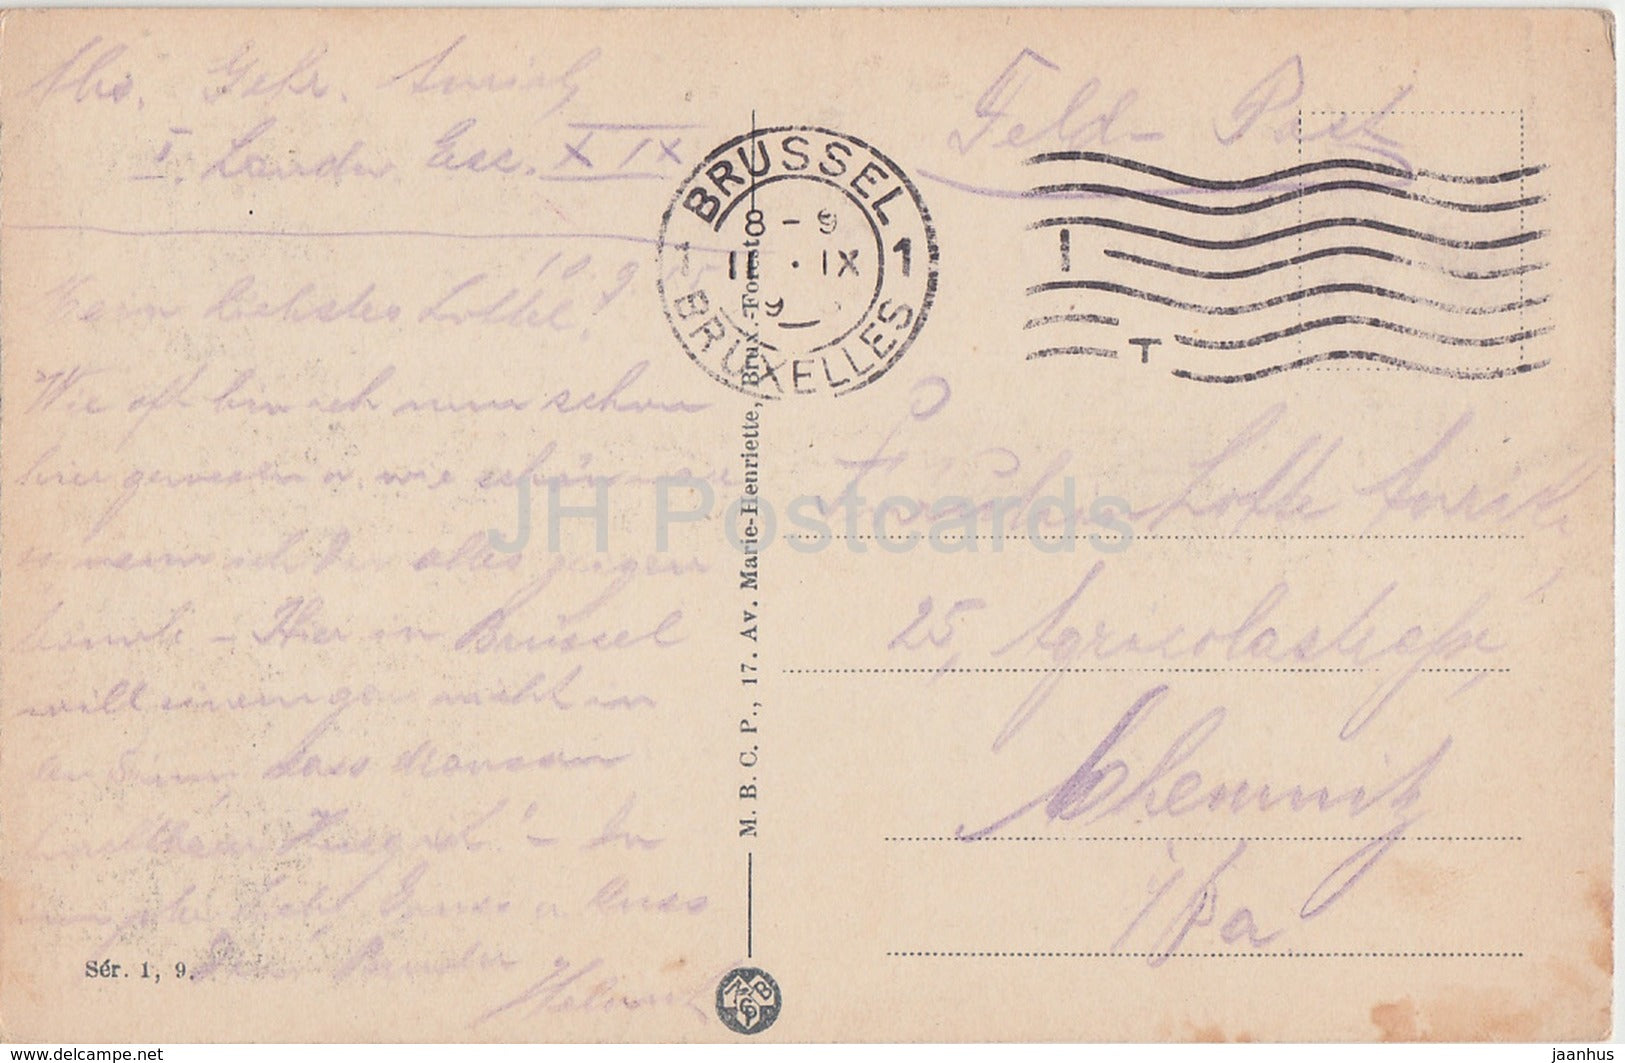 Abs. Gefr. Aurich
I. Landw. Esc. XIX
Feld-Post
BRUSSEL
8 - 9
1 11 . IX 1
9
BRUXELLES
10.9
Mein liebstes Lottel!
Wie oft bin ich nun schon
hier gewesen u. wie schön
wenn ich Dir alles zeigen
könnte - Hier in Brüssel
will einem gar nicht in
den Sinn, dass draussen
Krieg ist! - In
Gruss u Kuss
Dein Bruder
Helmut
Fräulein Lotte Aurich,
25, Agricolastraße,
Chemnitz
i/Sa
M. B. C. P., 17. Av. Marie-Henriette, Brux.-Forest
Sér. 1, 9.
M B C P
JH Postcards
www.delcampe.net
jaanhus